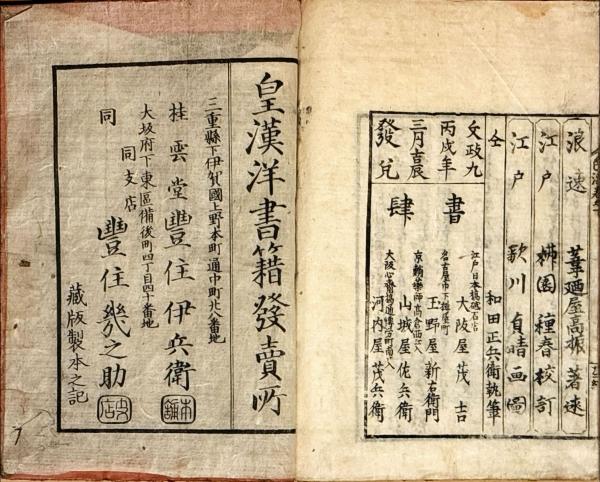 浪速 葦廼屋高振 著述
江戸 槑園種春校訂
江戸 歌川貞晴画圖
仝 和田正兵衛執筆
文政九
丙戌年
三月吉辰
發兌
書
肆
江戸日本橋砥石店
大阪屋茂吉
名古屋市下鍛屋町
玉野屋新右衛門
山城屋佐兵衛
河内屋茂兵衛
皇漢洋書籍發賣所
三重縣下伊賀國上野本町通中町北八番地
桂雲堂豐住伊兵衛
大坂府下東區備後町四丁目四十番地
同支店
同 豐住幾之助
藏版製本之記
本舗
支店